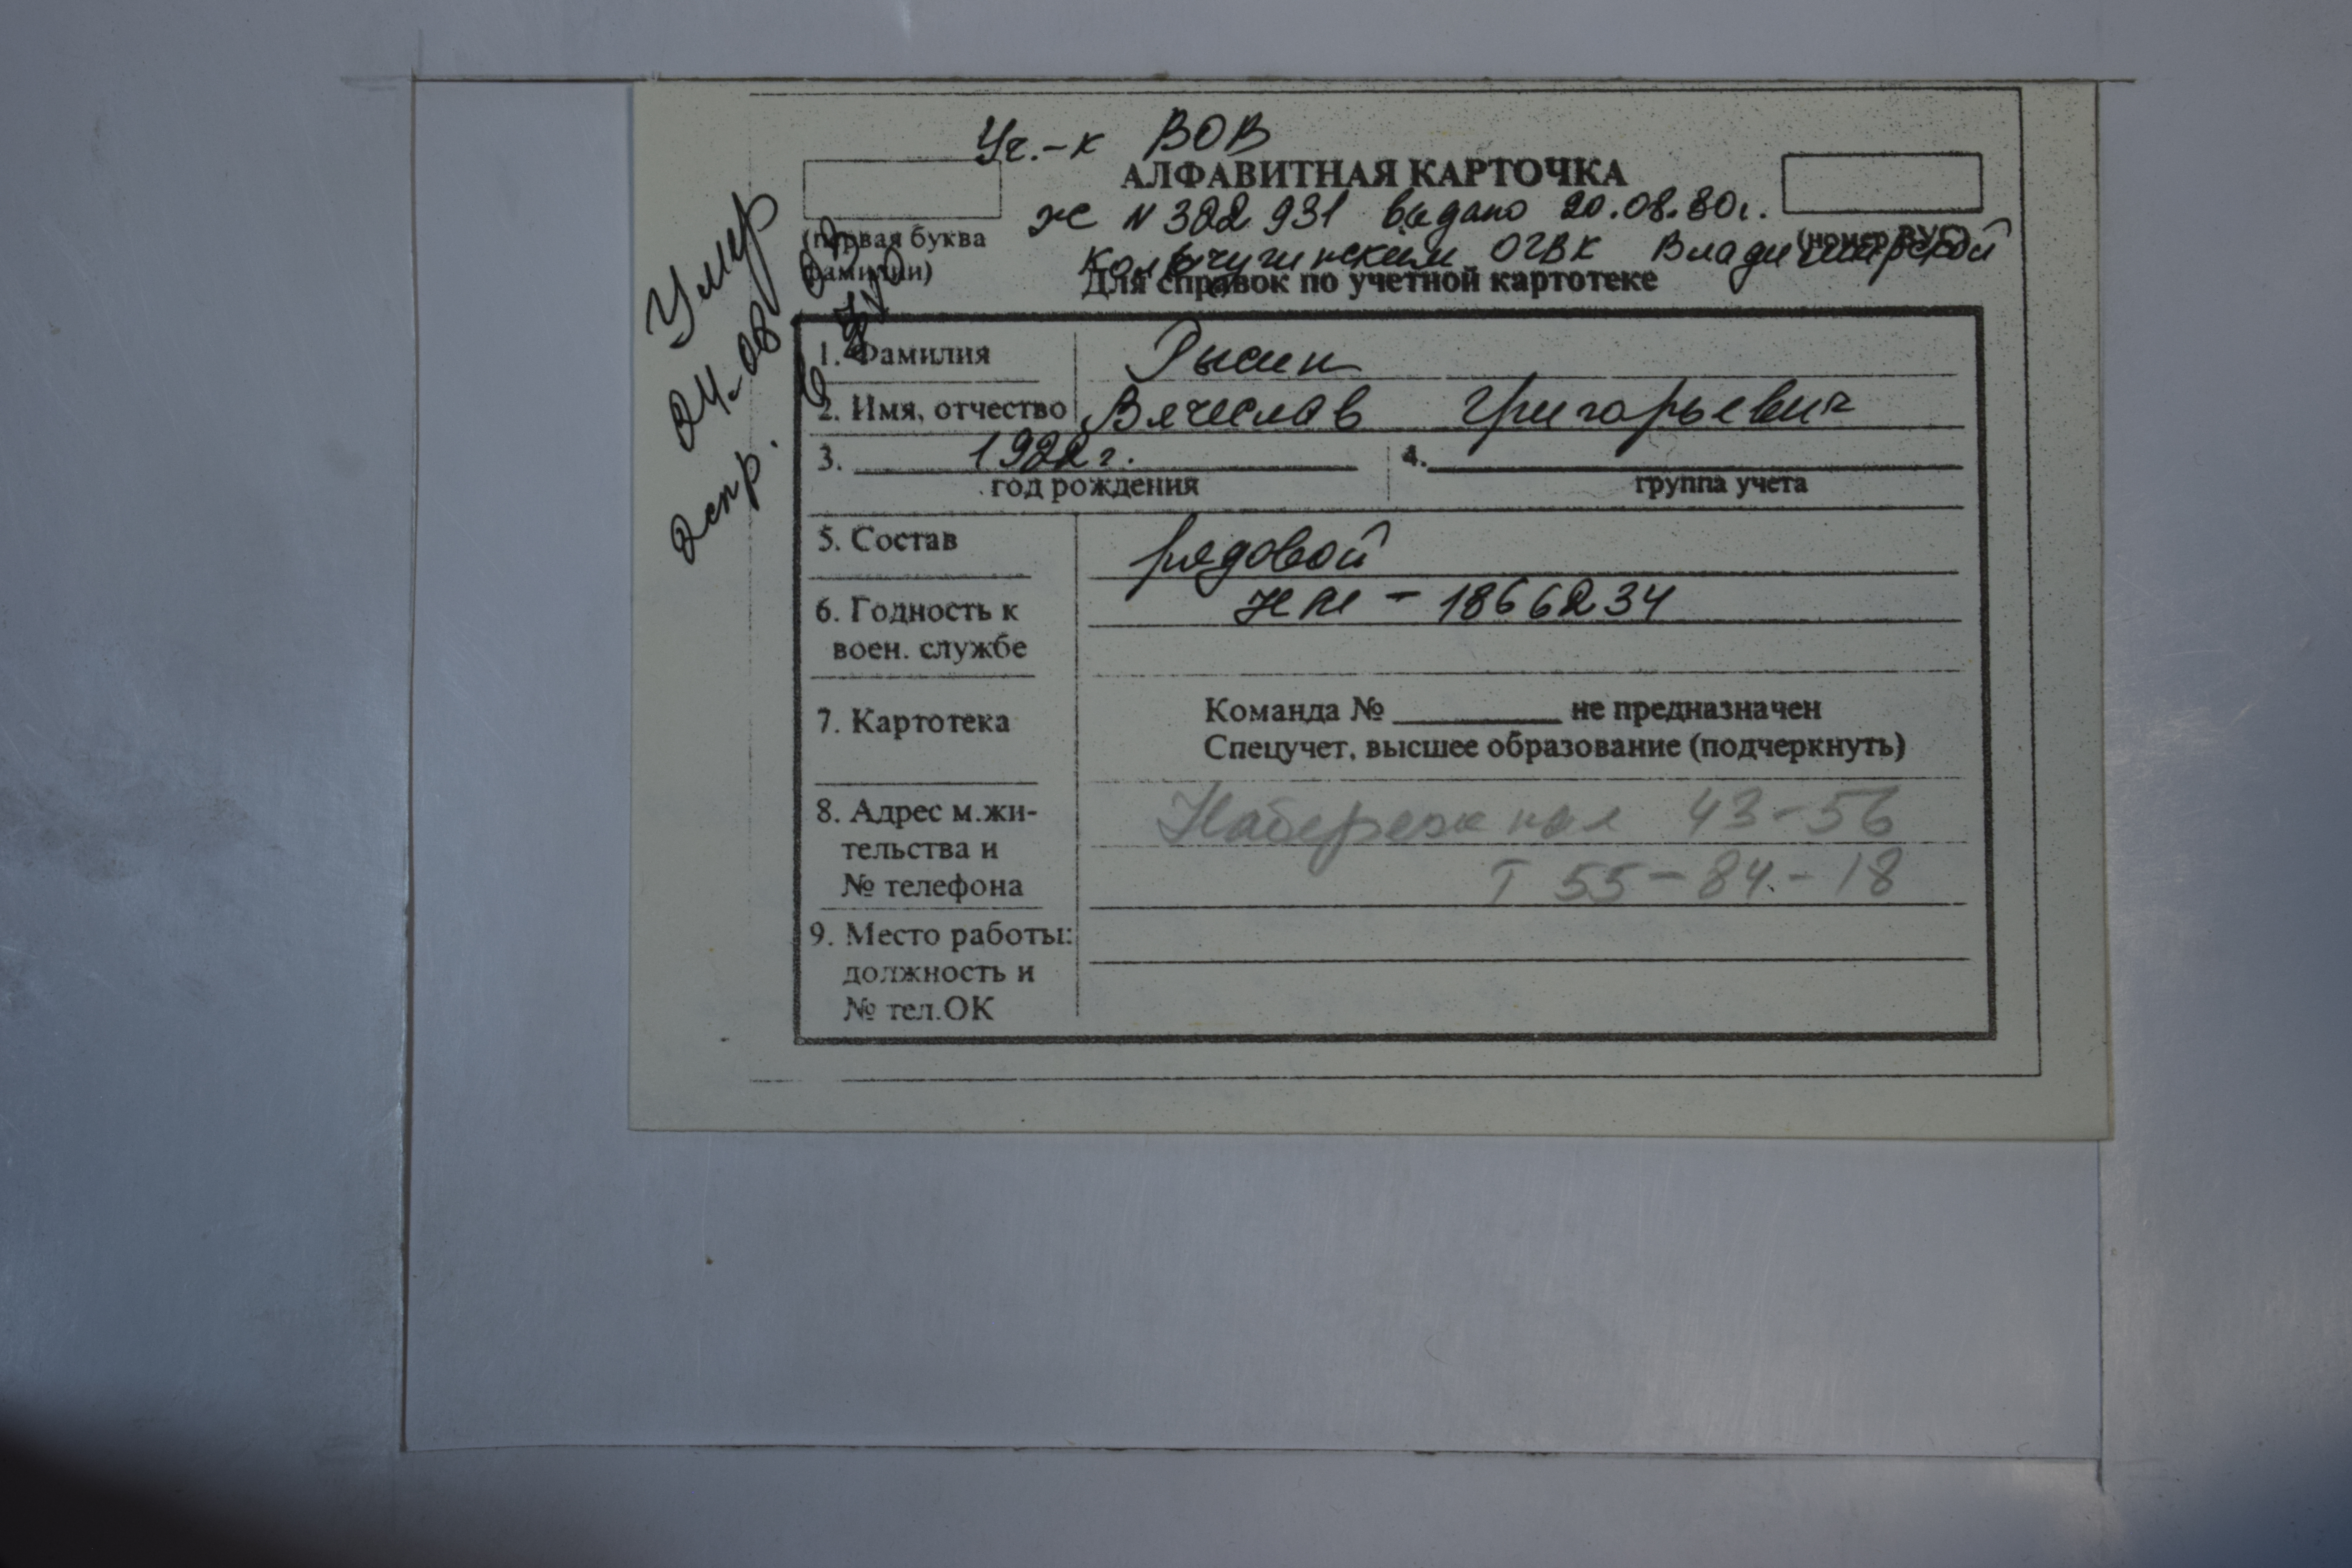 Уч.-к ВОВ
АЛФАВИТНАЯ КАРТОЧКА
ж N 322 931 выдано 20.08.80г.
(первая буква фамилии)
(номер ВУС)
Кольчугинским ОГВК Владимирской
Для справок по учетной картотеке
Умер
24.08
1. Фамилия
2. Имя, отчество Вячеслав Григорьевич
3. 1922 г. 4.
год рождения группа учета
5. Состав рядовой
6. Годность к НМ - 1866234
воен. службе
7. Картотека Команда № не предназначен
Спецучет, высшее образование (подчеркнуть)
8. Адрес м.жи- Набережная 43-56
тельства и
№ телефона Т 55-84-18
9. Место работы:
должность и
№ тел.ОК